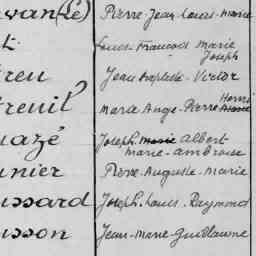 wan (Le) Pierre-Jean-Louis-Marie
t. Louis François Marie
Joseph
reu Jean Baptiste-Victor
Henri
treuil Marie Ange-Pierre
uazé Joseph Albert
Marie-Ambroise
unier Pierre-Auguste-Marie
ussard Joseph-Louis-Raymond
usson Jean-Marie-Guillaume